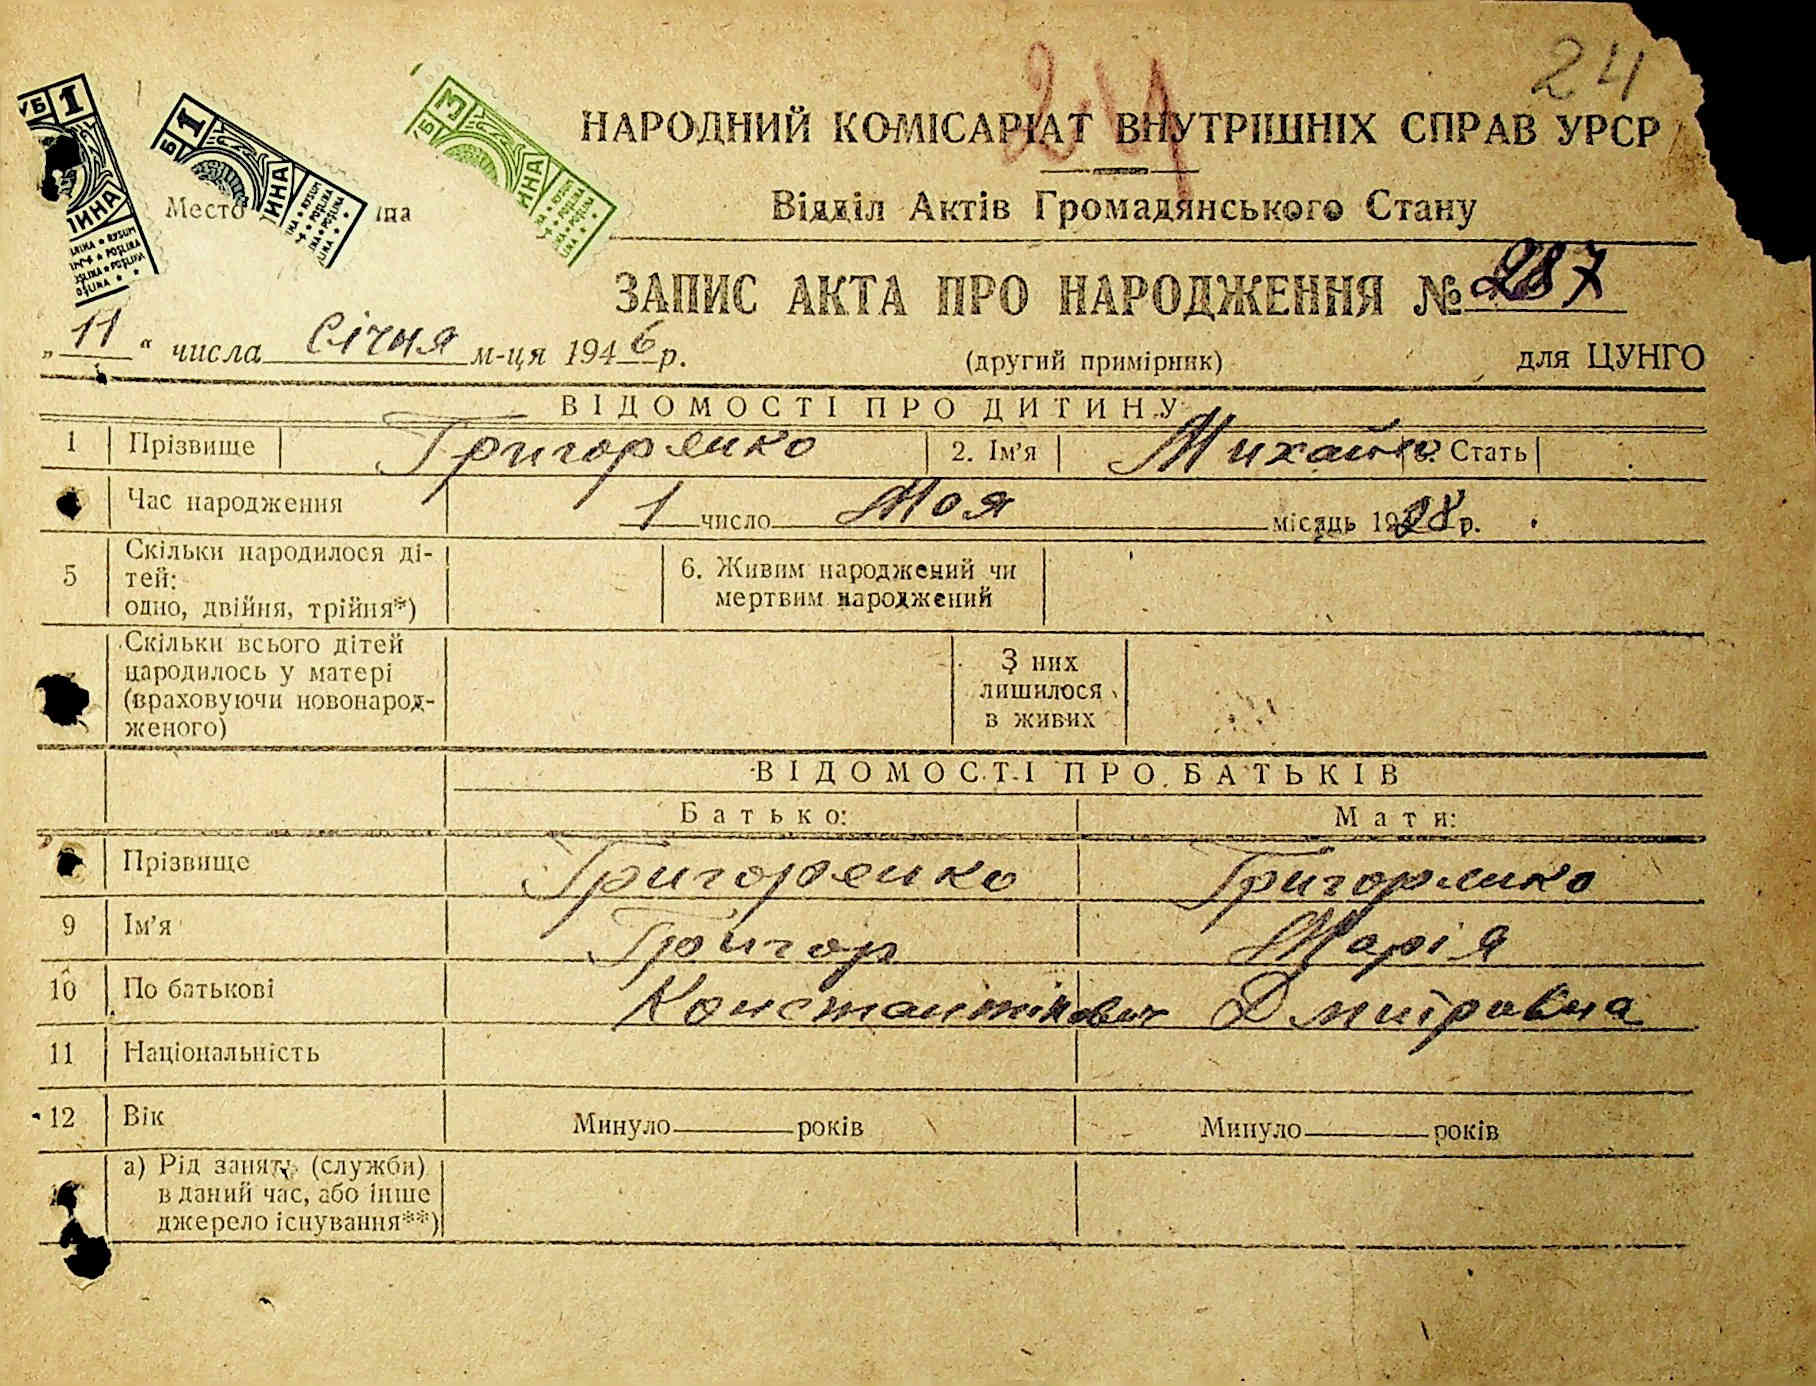 24
24
НАРОДНИЙ КОМІСАРІАТ ВНУТРІШНІХ СПРАВ УРСР
Відділ Актів Громадянського Стану
Место
ЗАПИС АКТА ПРО НАРОДЖЕННЯ № 287
„11“ числа Січня м-ця 1946 р. (другий примірник) для ЦУНГО
ВІДОМОСТІ ПРО ДИТИНУ
1 Прізвище Григоренко 2. Ім'я Михайло 3. Стать
Час народження 1 число Мая місяць 1928 р.
5 Скільки народилося ді-
тей:
одно, двійня, трійня*)
6. Живим народжений чи
мертвим народжений
Скільки всього дітей
народилось у матері
(враховуючи новонарод-
женого)
З них
лишилося
в живих
ВІДОМОСТІ ПРО БАТЬКІВ
Батько: Мати:
Прізвище Григоренко Григоренко
9 Ім'я Григор Марія
10 По батькові Константінович Дмитровна
11 Національність
12 Вік Минуло років Минуло років
а) Рід занять (служби)
в даний час, або інше
джерело існування**)